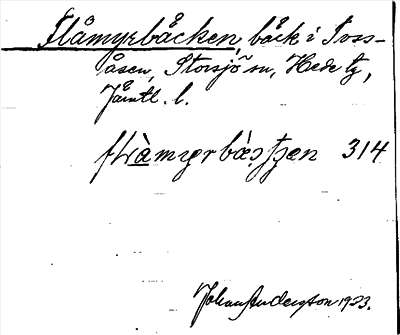 Flåmyrbäcken, bäck i Toss-
åsen, Storsjö sn, Hede tg,
Jämtl. l.
314
Johan Anderzson 1923.